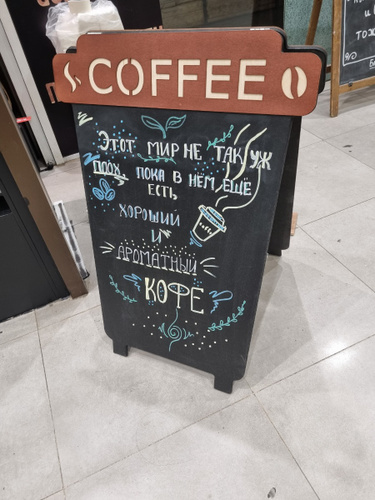 COFFEE
ЭТОТ МИР НЕ ТАК УЖ
ПЛОХ, ПОКА В НЕМ ЕЩЕ
ЕСТЬ
ХОРОШИЙ
И
АРОМАТНЫЙ
КОФЕ